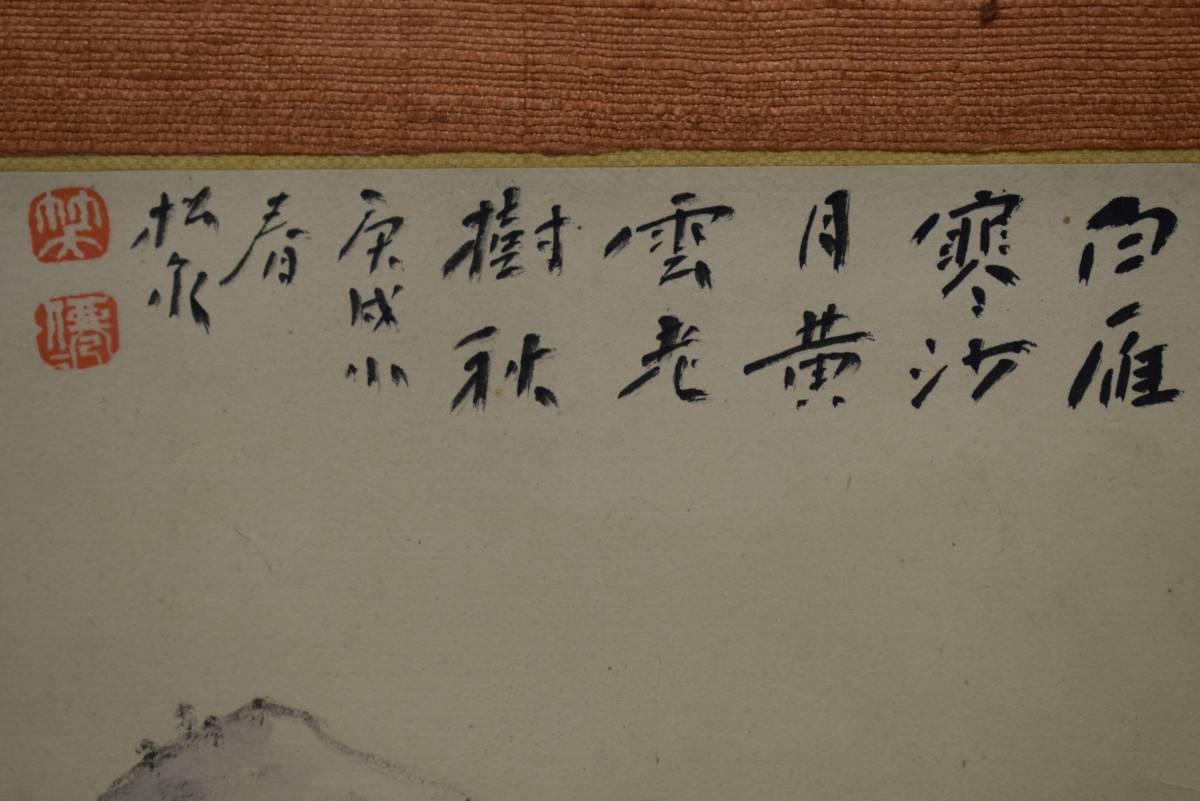 白雁
寒沙
月黄
雲老
樹秋
庚戌小
春
松泉